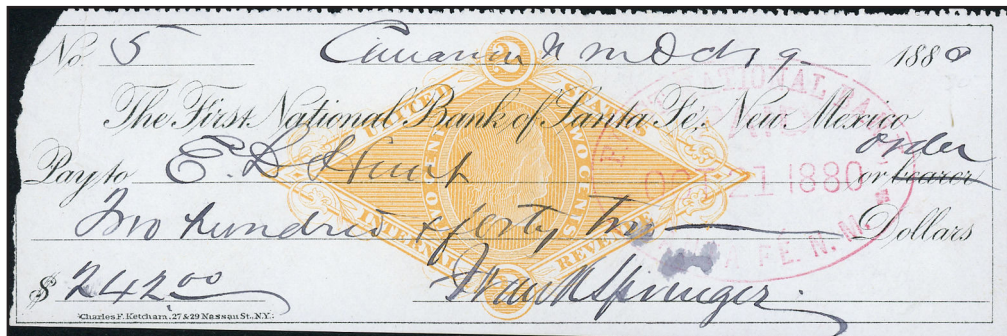 No. 5 Cimarron N M Oct 9 1880
The First National Bank of Santa Fe, New Mexico
order
Pay to E. D. Hunt or bearer
Two hundred & forty two Dollars
$ 242 00 Frank Springer.
Charles F. Ketcham, 27 & 29 Nassau St., N.Y.
2
UNITED STATES
TWO CENTS
INTERNAL REVENUE
2
NATIONAL BANK
OCT 1 1880
FE. N. M.